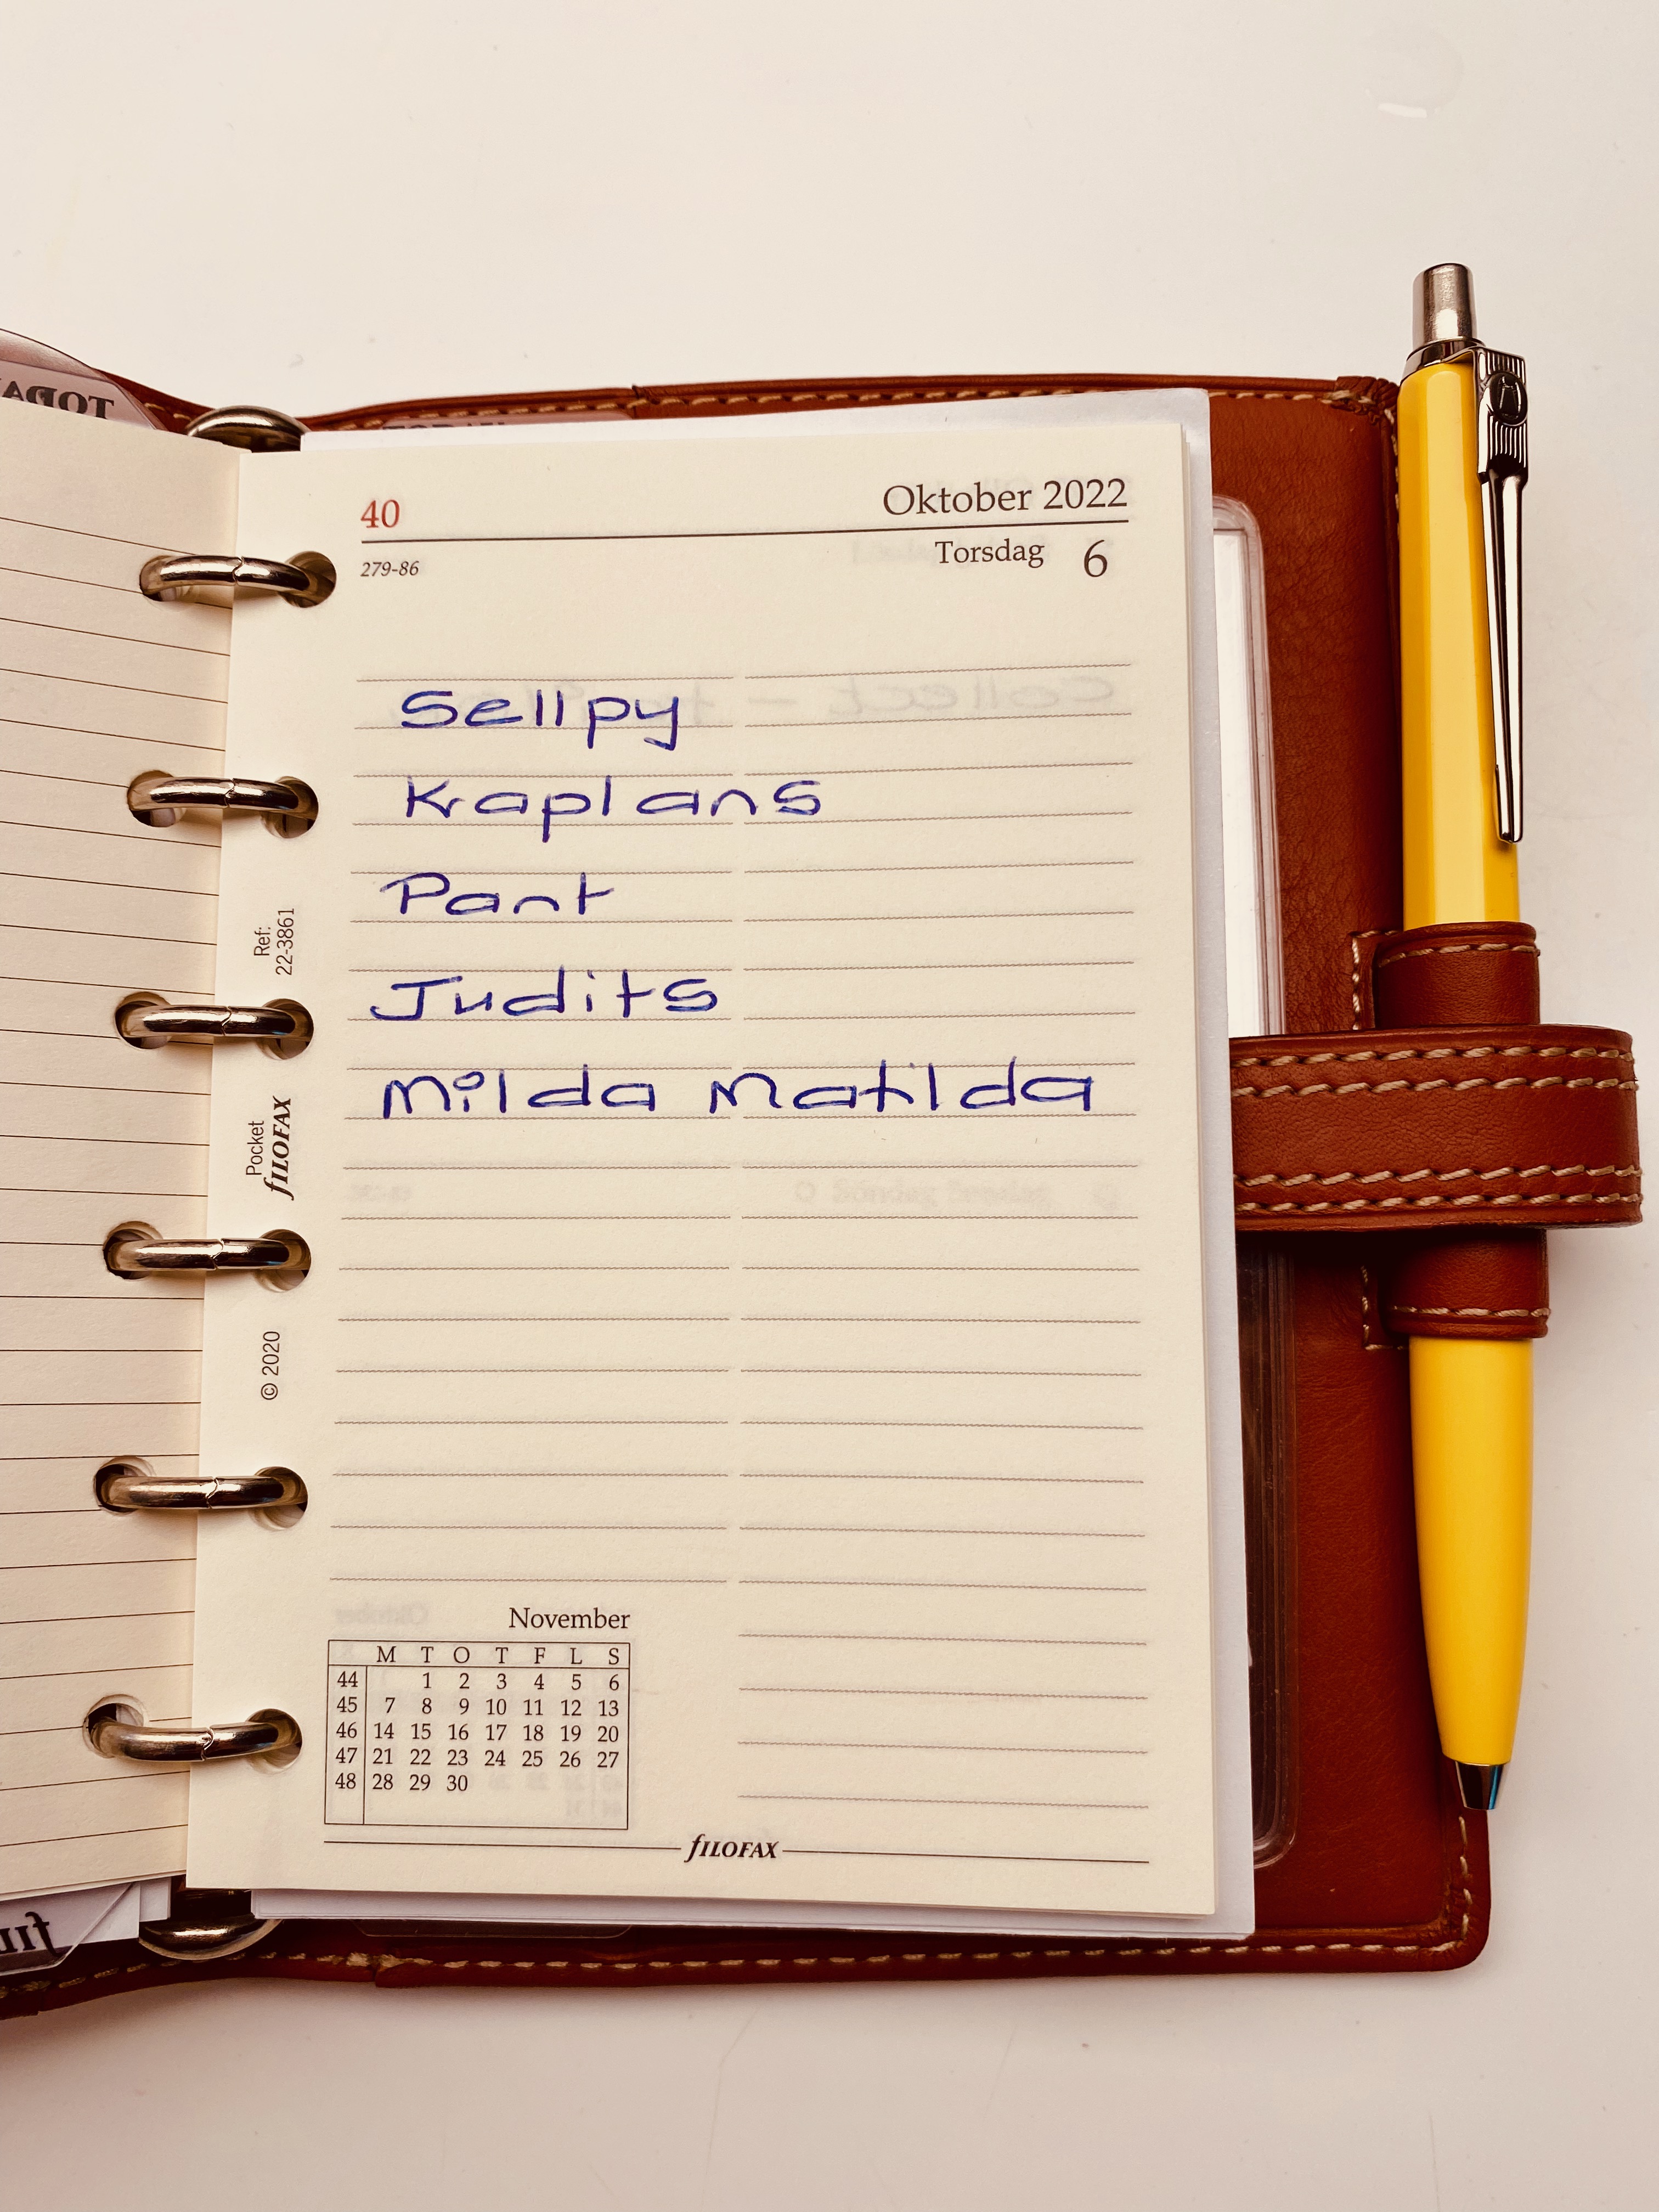 TODAY
40
Oktober 2022
279-86
Torsdag 6
Sellpy
Kaplans
Pant
Judits
Milda Matilda
Ref:
22-3861
Pocket
fILOFAX
© 2020
November
M T O T F L S
44 1 2 3 4 5 6
45 7 8 9 10 11 12 13
46 14 15 16 17 18 19 20
47 21 22 23 24 25 26 27
48 28 29 30
fILOFAX